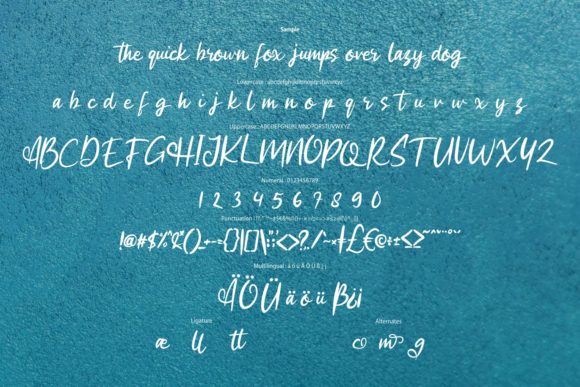 Sample
the quick brown fox jumps over lazy dog
Lowercase : abcdefghijklmnopqrstuvwxyz
a b c d e f g h i j k l m n o p q r s t u v w x y z
Uppercase : ABCDEFGHIJKLMNOPQRSTUVWXYZ
ABCDEFGHIJKLMNOPQRSTUVWXYZ
Numeral : 0123456789
1 2 3 4 5 6 7 8 9 0
Punctuation :
!@#$%^&*()_+-={}|[]\:;<>?,./~×‡£€©±≤≥
Multilingual : ä ö ü Ä Ö Ü ß
ÄÖÜ ä ö ü ß
Ligature Alternates
æ ll tt o m g